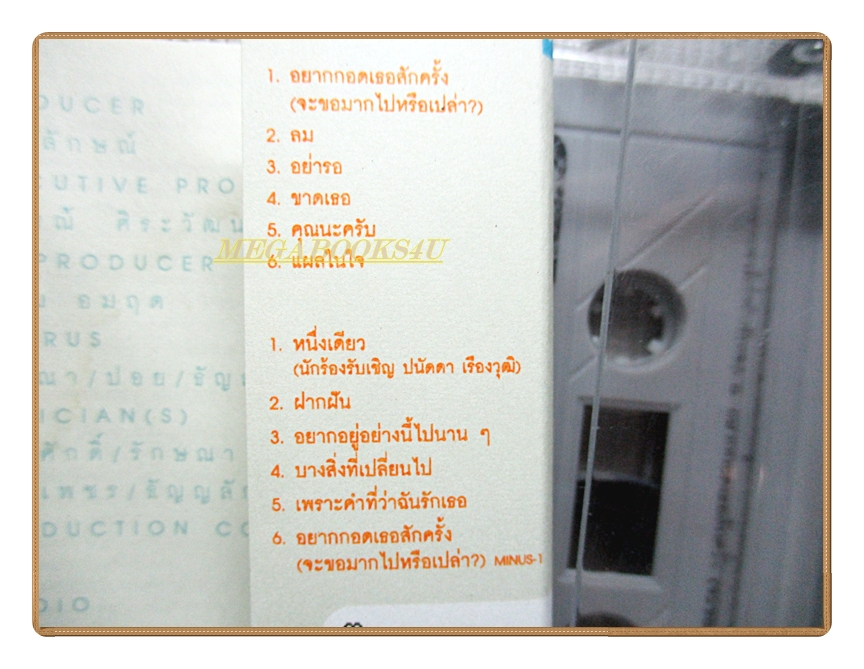 DUCER
ลักษณ์
UTIVE PRO
ณ์ ศิระวัฒน
PRODUCER
อมฤต
RUS
ณา/ปอย/ธัญ
ICIAN(S)
ศักดิ์/รักษณา
เพชร/ธัญญลัก
DUCTION CO
DIO
1. อยากกอดเธอสักครั้ง
(จะขอมากไปหรือเปล่า?)
2. ลม
3. อย่ารอ
4. ขาดเธอ
5. คุณนะครับ
MEGABOOKS4U
6. แผลในใจ
1. หนึ่งเดียว
(นักร้องรับเชิญ ปนัดดา เรืองวุฒิ)
2. ฝากฝัน
3. อยากอยู่อย่างนี้ไปนาน ๆ
4. บางสิ่งที่เปลี่ยนไป
5. เพราะคำที่ว่าฉันรักเธอ
6. อยากกอดเธอสักครั้ง
(จะขอมากไปหรือเปล่า?) MINUS-1